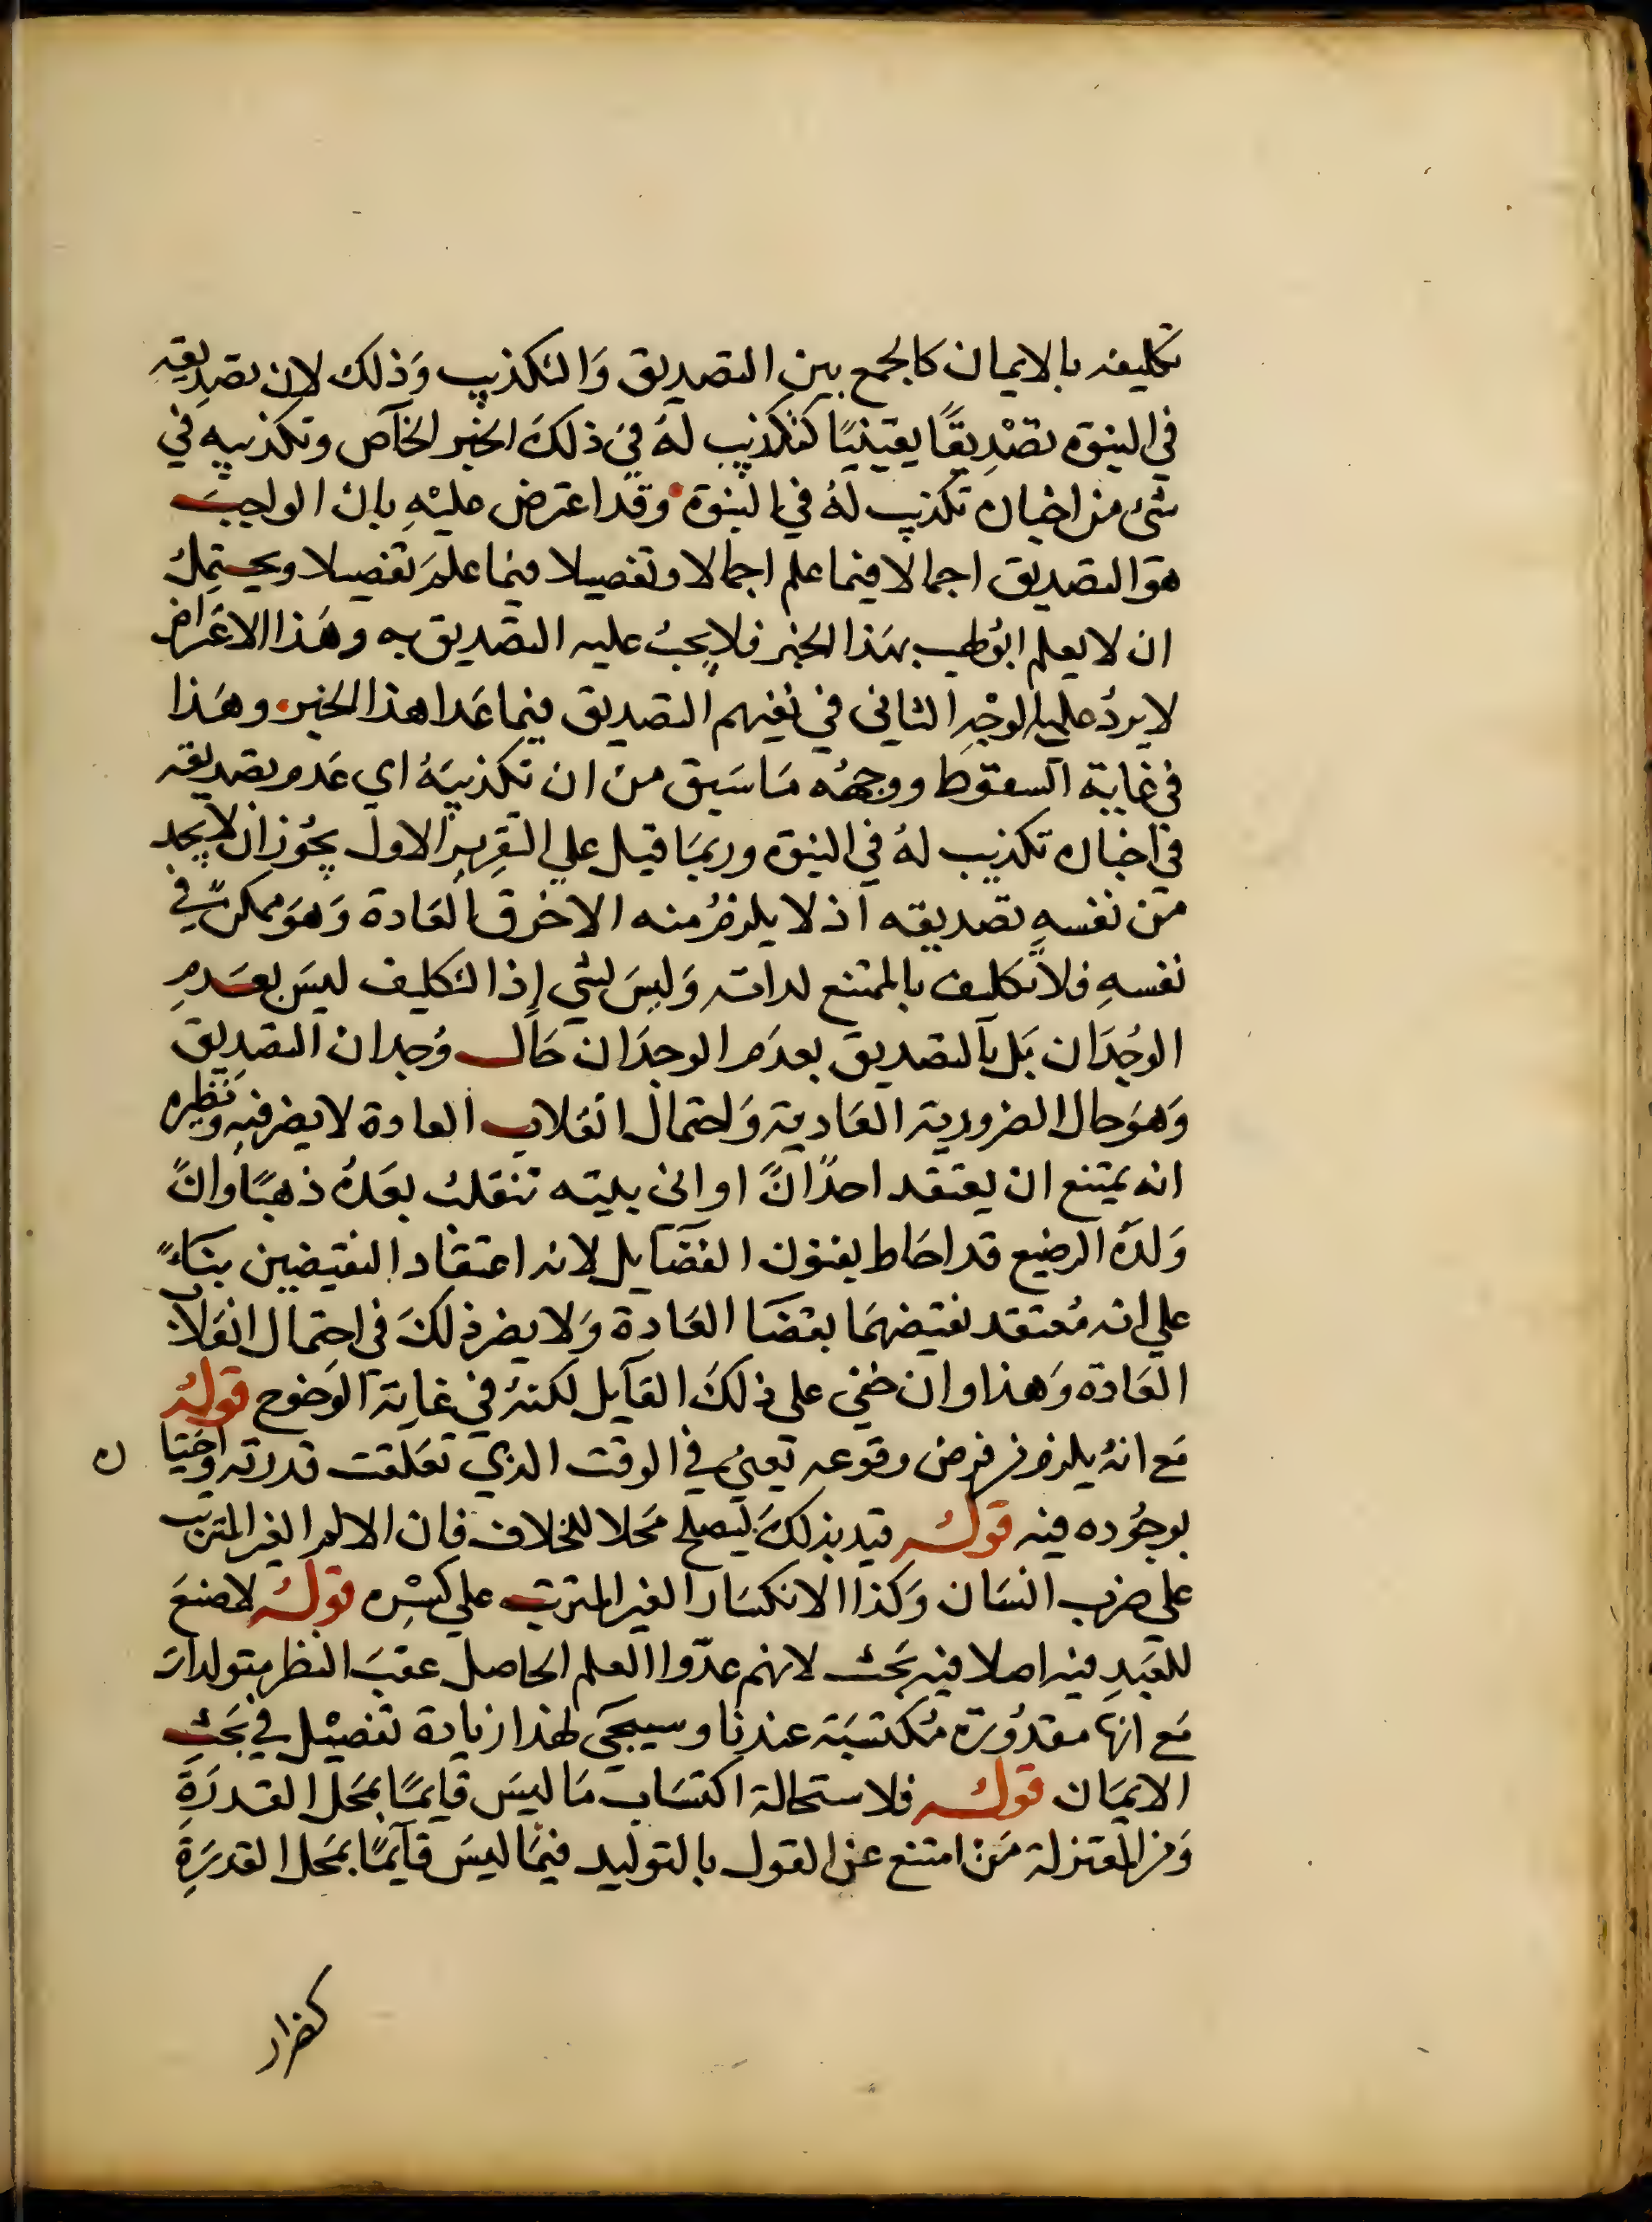 تكليفه بالايمان كالجمع بين التصديق وَالتكذيب وَذلك لان تصديقه
في النبوة تصْدِيقًا يقينيًا كتكذيب لهُ في ذلكَ الخبر الخاص وتكذيبه في
شئ من اخباره تكذيب لهُ في النبوة وقد اعترض عليْهِ بان الواجبَ
هو التصديق اجمالا فيما علم اجمالا وتفصيلا فيما علمَ تفصيلا ويحتملُ
ان لا يعلم ابولهب بهذا الخبر فلا يجبُ عليه التصديق به وهَذا الاعتراض
لا يردُ على الوجْهِ الثاني في نفيهم التصديق فيما عَدا هذا الخبر وهَذا
في غاية السقوط ووجههُ مَا سَبق من ان تكذيبَهُ اي عَدم تصديقه
في اخباره تكذيب لهُ في النبوة وربمَا قيل علي التقرِيرِ الاول يجُوز ان لا يجد
من نفسهِ تصديقه اذ لا يلزمُ منه الا خرق العَادة وَهوَ ممكن في
نفسهِ فلا تكليف بالممتنع لذاته وَليسَ بشي إذ التكليف ليسَ بعَدمِ
الوجْدَان بَل بالتصديق بعدَم الوجدَان حَال وُجدان التصدِيق
وَهوَ حال الضرورية العَادية وَاحتمال انقلاب العادة لا يضر فيه ونظيره
انه يمتنع ان يعتقد احدٌ انّ اواني بيته تنقلبُ بعَدهُ ذهبًا وانّ
وَلدَهُ الرضيع قد احَاط بفنون الفضَايل لانه اعتقاد النقيضين بنَاءً
علي انه مُعتقد نقيضهمَا بقضَا العَادة وَلا يضر ذلكَ في احتمال انقلاب
العَادة وَهذا وان خفي على ذلكَ القايل لكنهُ في غاية الوَضوح قولهُ
مَع انهُ يلزم من فرض وقوعه يَعني في الوقت الذي تعَلقت قدرته واختيا ره
بوجُوده فيه قولهُ قيد بذلكَ ليصلح مَحلا للخلاف فان الالم الغير المترتب
علي ضرب انسَان وَكذا الانكسَار الغير المترتب علي كسْرِه قولهُ لا صنعَ
للعَبدِ فيه اصلا فيه بَحث لانهم عدّوا العلم الحاصل عقبَ النظر متولدات
مَع انها مقدُورة مُكتسَبة عندنا وسيجَي لهذا زيادة تفصيْل في بَحثِ
الايمَان قولهُ فلاستحالة اكتسَاب مَا ليسَ قايمًا بمَحل القدرَةِ
وَمن المعتزلة مَن امتنع عن القول بالتوليد فيمَا ليسَ قآيمًا بمَحل القدرَةِ
كضرار